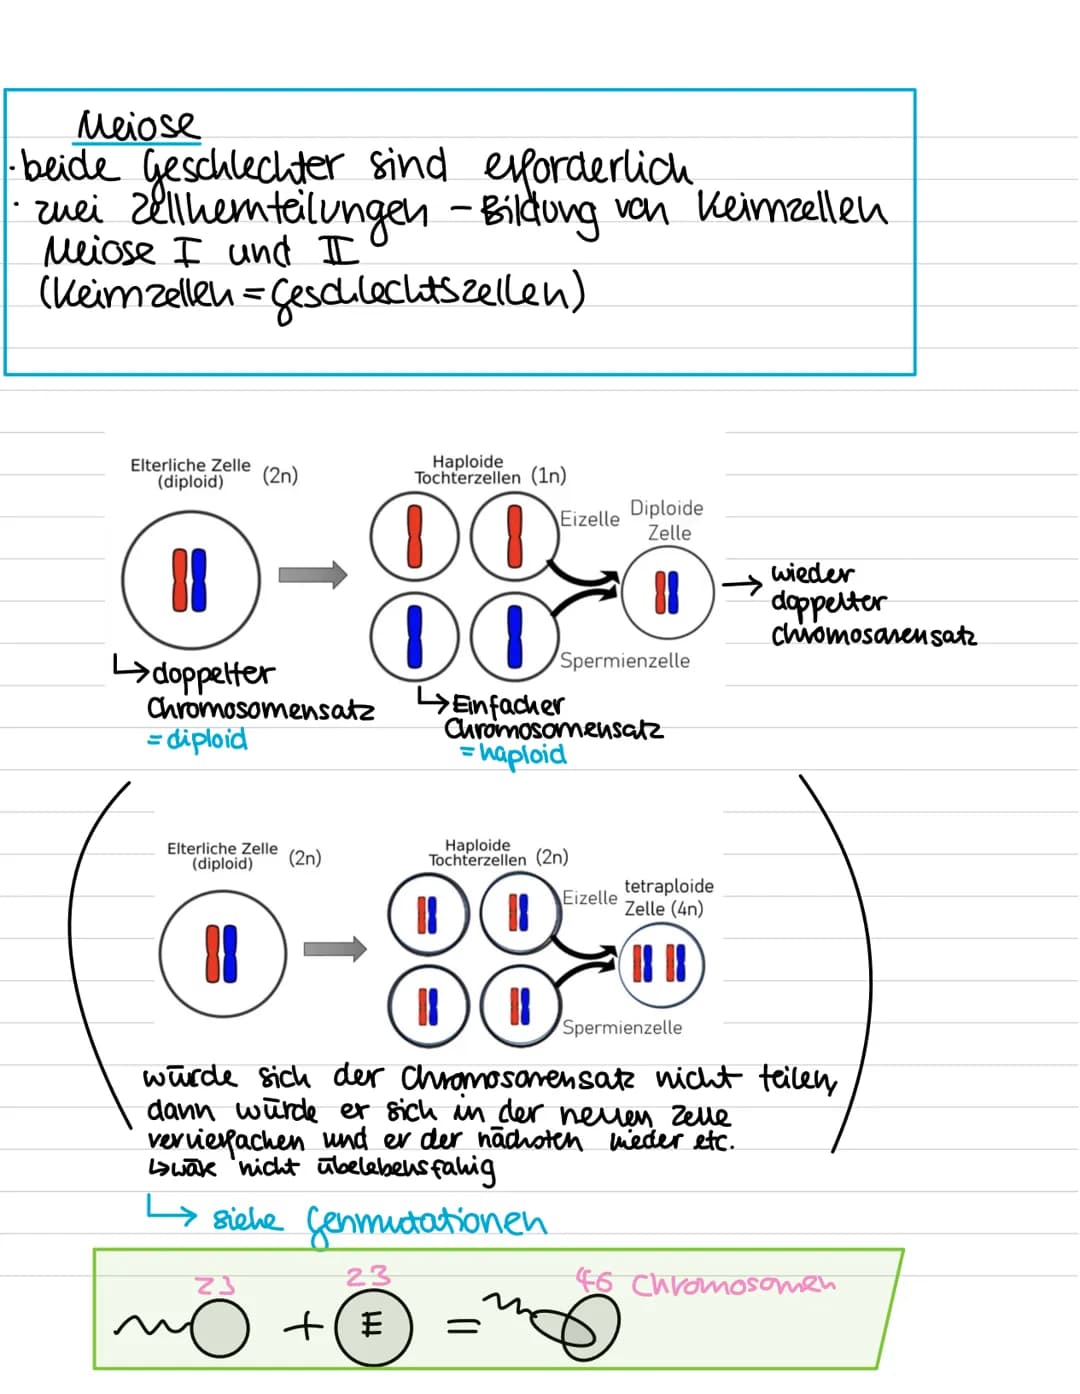 Meiose
· beide Geschlechter sind erforderlich
· zwei Zellkernteilungen - Bildung von Keimzellen
Meiose I und II
(Keimzellen = Geschlechtszellen)
Elterliche Zelle (2n)
(diploid)
Haploide
Tochterzellen (1n)
Eizelle
Diploide
Zelle
Spermienzelle
→ wieder
doppelter
Chromosomensatz
↳ doppelter
Chromosomensatz
= diploid
↳ Einfacher
Chromosomensatz
= haploid
Elterliche Zelle (2n)
(diploid)
Haploide
Tochterzellen (2n)
Eizelle
tetraploide
Zelle (4n)
Spermienzelle
würde sich der Chromosomensatz nicht teilen,
dann würde er sich in der neuen Zelle
vervierfachen und er der nächsten wieder etc.
↳ wäre nicht übelebensfähig
↳ siehe Genmutationen
23
23
46 Chromosomen
+ E =